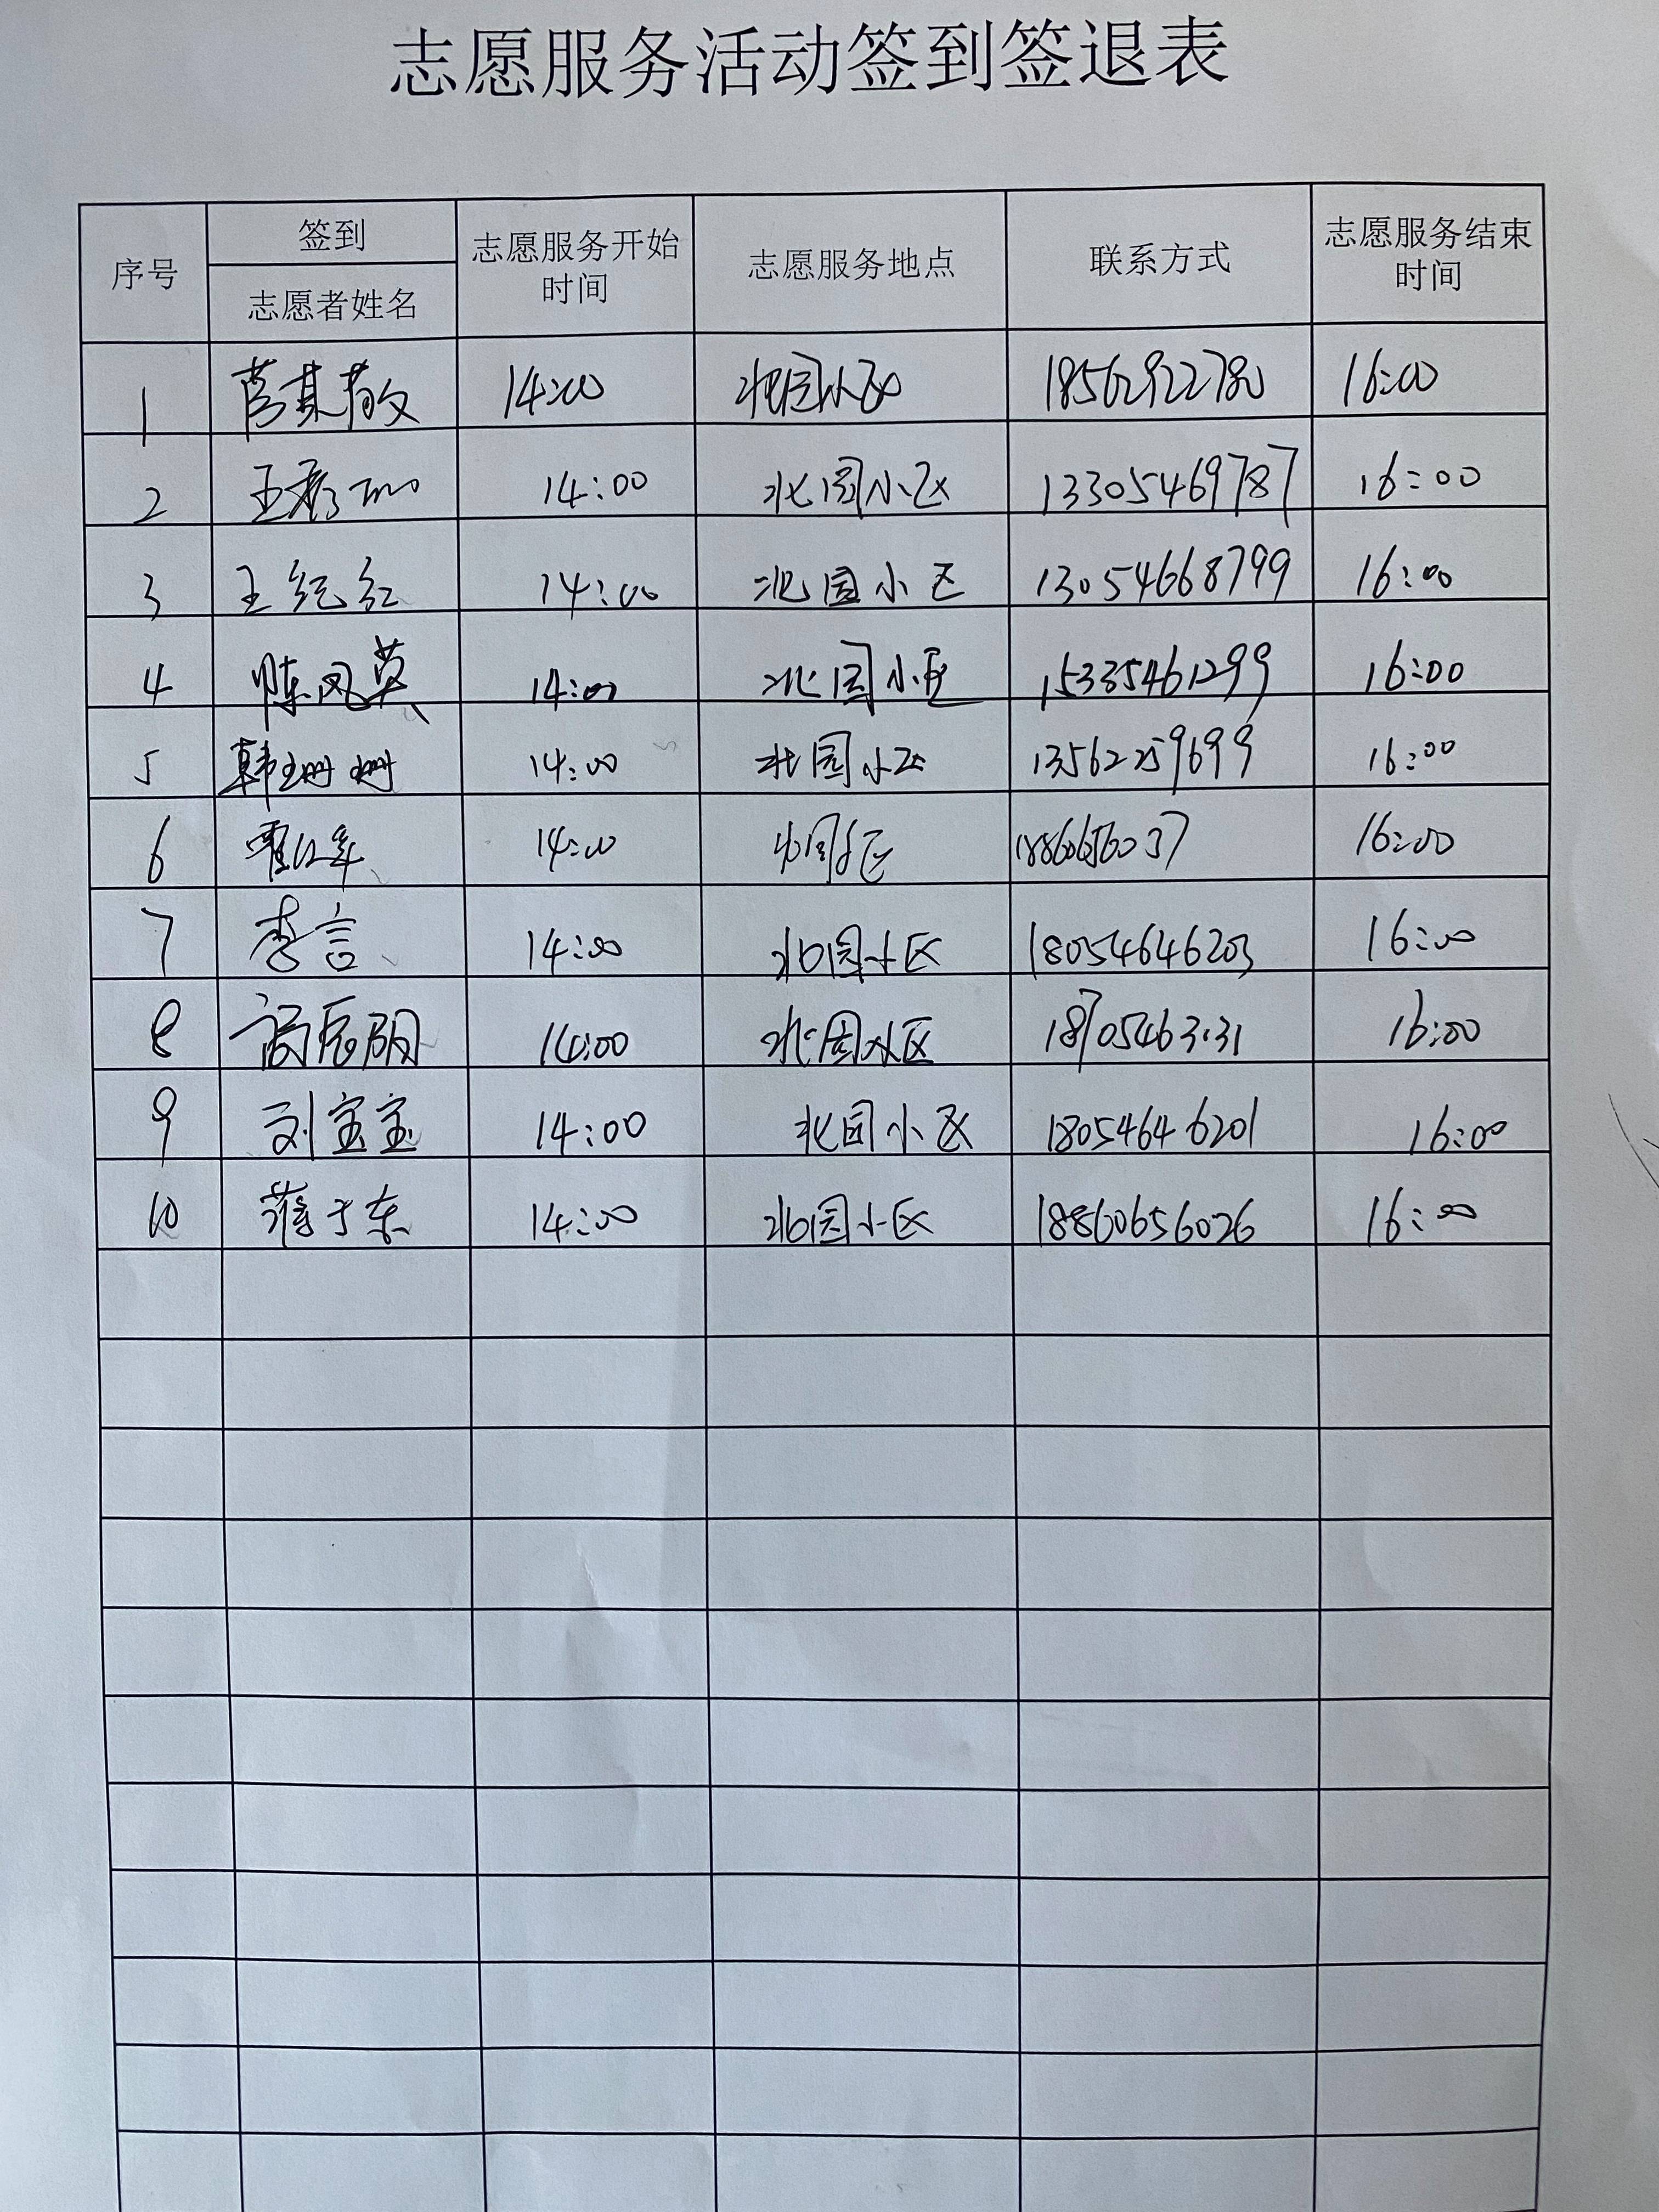 志愿服务活动签到签退表
序号 签到 志愿者姓名 志愿服务开始时间 志愿服务地点 联系方式 志愿服务结束时间
1 14:00 北园小区 18562922780 16:00
2 14:00 北园小区 13305469787 16:00
3 王纪红 14:00 北园小区 13054668799 16:00
4 陈风英 14:00 北园小区 15335461299 16:00
5 韩珊珊 14:00 北园小区 13562259699 16:00
6 14:00 北园小区 16:00
7 李言 14:00 北园小区 18054646203 16:00
8 14:00 北园小区 16:00
9 刘宝宝 14:00 北园小区 18054646201 16:00
10 14:00 北园小区 18860656026 16:00